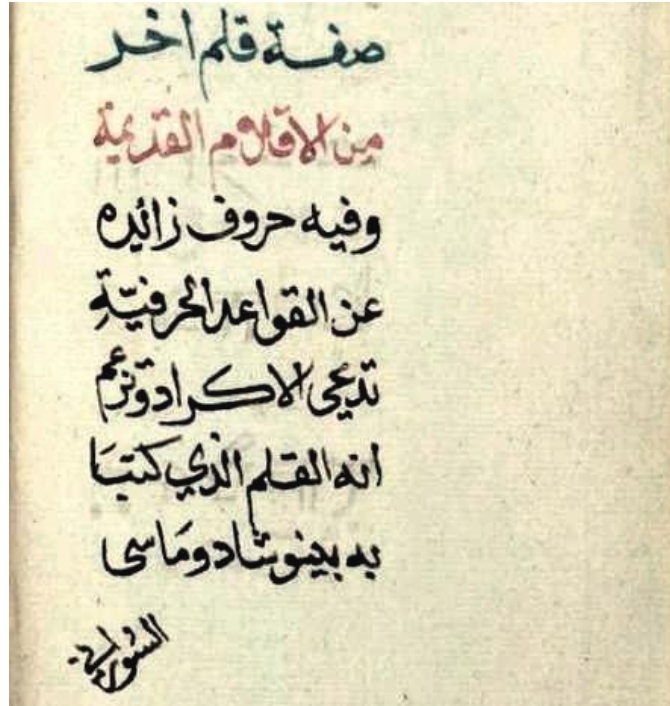 صفة قلم اخر
من الاقلام القديمة
وفيه حروف زائده
عن القواعد الحرفيّة
تدعى الاكراد وتزعم
انه القلم الذي كتبَا
به بينوشاد ومَاسى
السوراتى